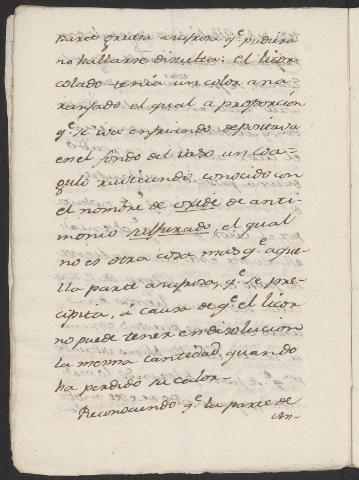 parte gruesa azufrosa q.e pudiera
no hallarse disuelta: el licor
colado tenia un color ana-
ranjado el qual a proporcion
q.e se iva enfriando depositava
en el fondo del vaso un coa-
gulo conocido con
el nombre de oxide de anti-
monio sulfurado, el qual
no es otra cosa mas q.e aque-
lla parte azufrosa, q.e se pre-
cipita, á causa de q.e el licor
no puede tener en disolucion
la misma cantidad, quando
ha perdido su calor.
Reconociendo q.e la parte de